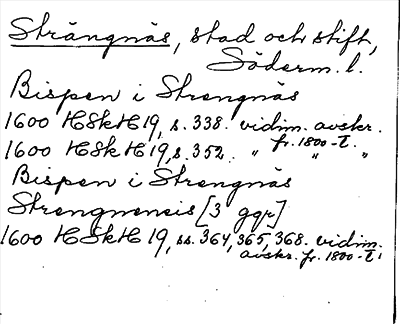 Strängnäs, stad och stift,
Söderm. l.
Bispen i Strengnäs
1600 HSkH 19, s. 338. vidim. avskr.
fr. 1800-t.
1600 HSkH 19, s. 352. " " "
Bispen i Strengnäs
Strengnensis [3 ggr]
1600 HSkH 19, ss. 364, 365, 368. vidim.
avskr. fr. 1800-t.